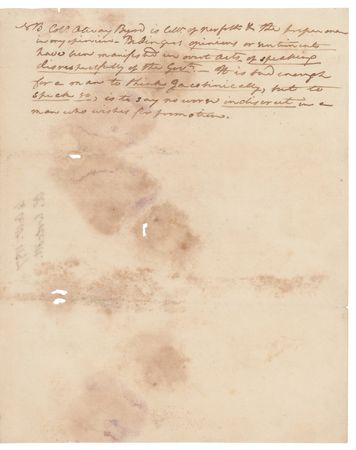 NB Colo. Otway Byrd is Collr. of Norfolk & the proper man
in my opinion – Dr Bingus' opinions or sentiments
have been manifested in overt Acts, of speaking
disrespectfully of the Govt. – It is bad enough
for a man to think Jacobinically, but to
speak so, is to say no worse indiscreet in a
man who wishes for promotion.